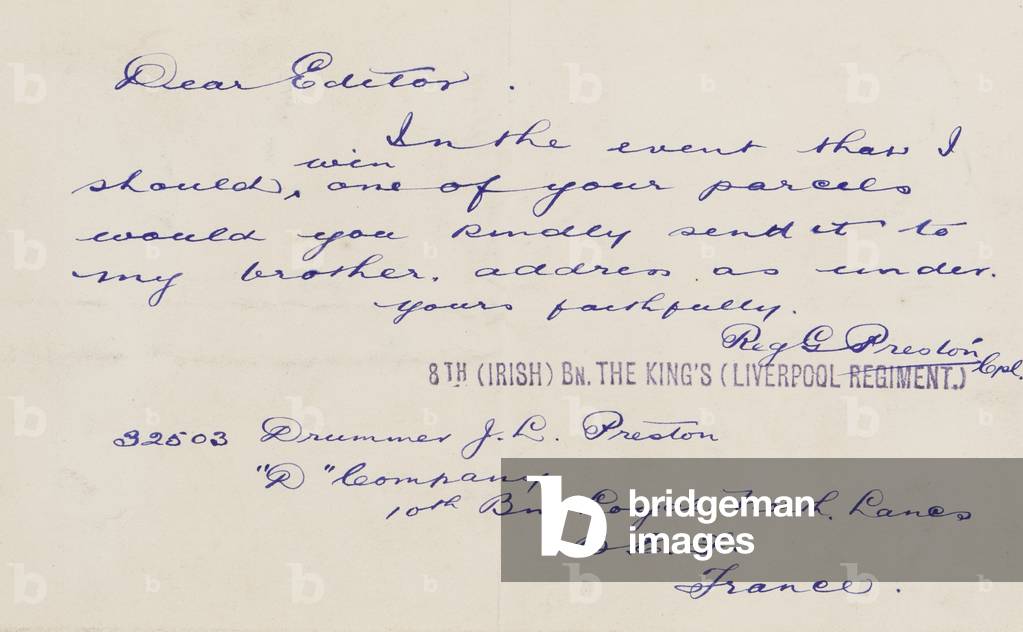 Dear Editor.
In the event that I
win
should, one of your parcels
would you kindly send it to
my brother. address as under.
yours faithfully.
Reg G Preston Cpl.
8TH (IRISH) BN. THE KING'S (LIVERPOOL REGIMENT.)
32503 Drummer J. L. Preston
"D" Company
10th Bn Loyal North. Lancs
France.
bridgeman
images